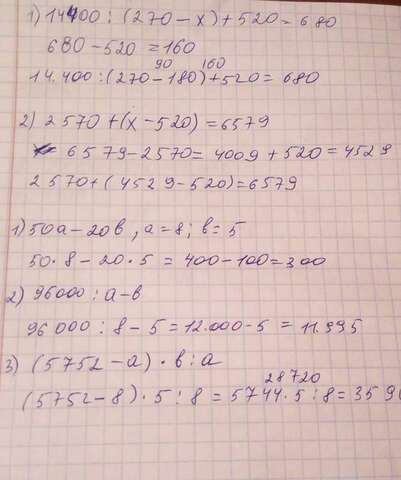 1) 14400 : (270 - x) + 520 = 680
680 - 520 = 160
90 160
14.400 : (270 - 180) + 520 = 680
2) 2570 + (x - 520) = 6579
6579 - 2570 = 4009 + 520 = 4529
2570 + (4529 - 520) = 6579
1) 50a - 20b, a = 8; b = 5
50 · 8 - 20 · 5 = 400 - 100 = 300
2) 96000 : a - b
96000 : 8 - 5 = 12.000 - 5 = 11.995
3) (5752 - a) · b : a
28720
(5752 - 8) · 5 : 8 = 5744 · 5 : 8 = 359